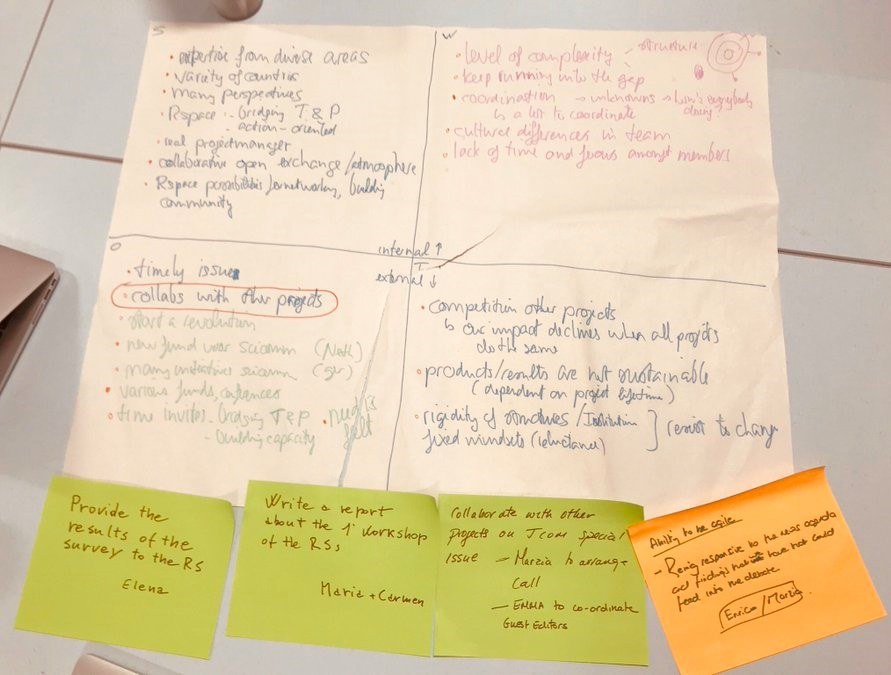 S
• expertise from diverse areas
• variety of countries
• many perspectives
• Rspace - bridging T & P
- action-oriented
• real projectmanager
• collaborative open exchange/atmosphere
• Rspace possibilities for networking, building
community
W
• level of complexity - structure
• keep running into the gap
• coordination → unknowns → how's everybody
doing
is a lot to coordinate
• cultural differences in team
• lack of time and focus amongst members
internal ↑
external ↓
O
• timely issue
• collabs with other projects
• start a revolution
• new fund voor scicomm (Neth)
• many initiatives scicomm
• various funds, conferences
• time invites - bridging T & P
- building capacity
• need is
felt
T
• competition other projects
↳ our impact declines when all projects
do the same
• products/results are not sustainable
(dependent on project lifetime)
• rigidity of structures/Institution
fixed mindsets (reluctance)
] resist to change
Provide the
results of the
survey to the RS
Elena
Write a report
about the 1° workshop
of the RSs
Maria + Carmen
Collaborate with other
projects on Jcom special
issue - Marzia to arrange
call
- EMMA to co-ordinate
Guest Editors
Ability to be agile
- Being responsive to the news agenda
and findings that we have that could
feed into the debate
Enrico/Marzia